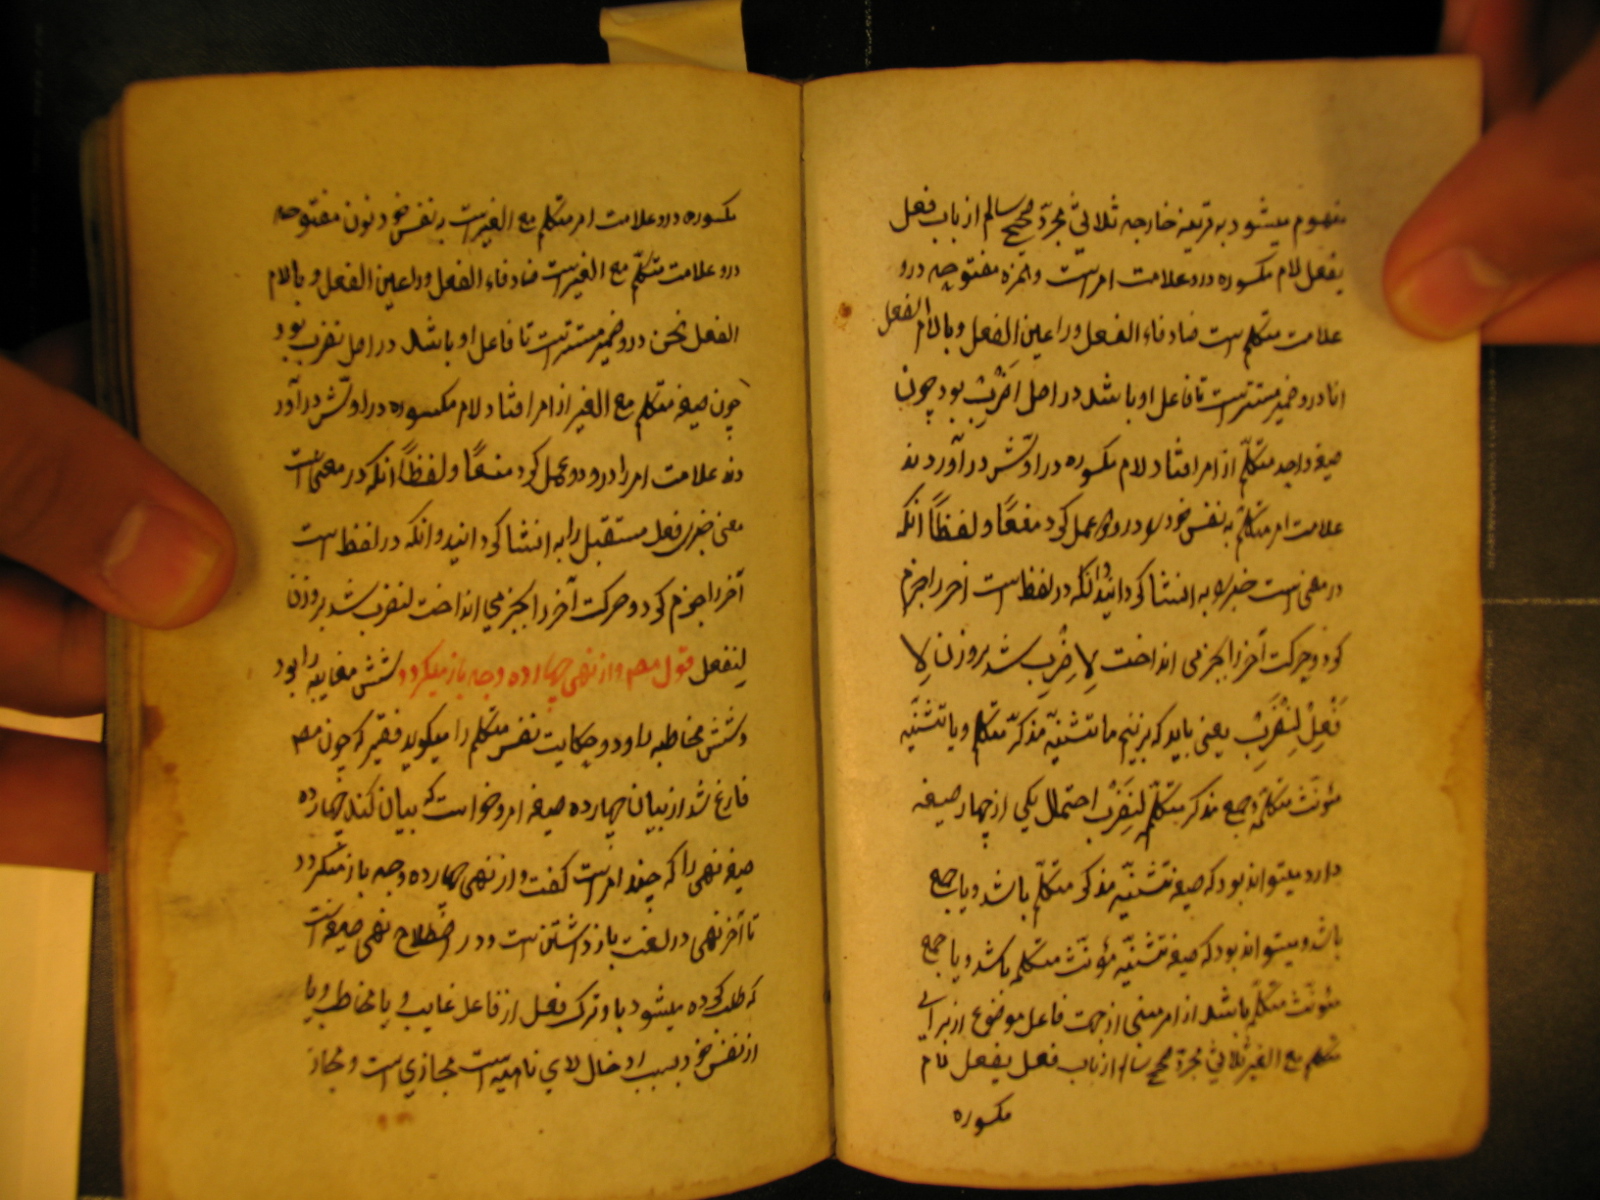 مفهوم میشود به قرینه خارجه ثلاثی مجرّد صحیح سالم از باب فعل
یفعل لام مکسوره درو علامت امرست و همزه مفتوحه درو
علامت متکلم است ضاد فاء الفعل و را عین الفعل و با لام الفعل
انا درو ضمیر مستترست تا فاعل او باشد در اصل اَضْرِبُ بود چون
صیغه واحد متکلّم از امر افتاد لام مکسوره در اوّلش در آوردند
علامت امر متکلم به نفس خود بود درو دو عمل کرد معنًا و لفظاً آنکه
در معنی است خبر را به انشا گردانید و انکه در لفظ است آخر را جزم
کرد و حرکت آخر را بجزمی انداخت لِاَضْرِبْ شد بر وزن لِاَ
فْعِلْ لِنَضْرِبْ یعنی باید که بزنیم ما تثنیّه مذکّر متکلم و یا تثنیّه
مئونّث متکلّم و جمع مذکر متکلّم لِنَضْرِبْ احتمال یکی از چهار صیغه
دارد میتواند بود که صیغه تثنیّه مذکر متکلّم باشد و یا جمع
باشد و میتواند بود که صیغه تثنیّه مؤنّث متکلم باشد و یا جمع
مئونّث متکلّم باشد از امر مبنی از جهت فاعل موضوع از برای
متکلم مع الغیر ثلاثی مجرّد صحیح سالم از باب فعل یفعل لام
مکسوره
مکسوره درو علامت امر متکلم مع الغیرست به نفس خود نون مفتوحه
درو علامت متکلّم مع الغیرست ضاد فاء الفعل و را عین الفعل و با لام
الفعل نحن درو ضمیر مستترست تا فاعل او باشد در اصل نضرب بود
چون صیغه متکلم مع الغیر از امر افتاد لام مکسوره در اوّلش در آور
دند علامت امر را درو دو عمل کرد معنًا و لفظاً انکه در معنی است
معنی خبری فعل مستقبل را به انشا گردانید و انکه در لفظ است
آخر را جزم کرد و حرکت آخر را بجزمی انداخت لنضرب شد بر وزن
لِنفعل قول مصه و از نهی چهارده وجه باز میکردد شش مغایبه را بود
و شش مخاطبه را و دو حکایت نفس متکلم را میکوید فقیر که چون مصه
فارغ شد از بیان چهارده صیغه امر و خواست که بیان کند چهارده
صیغه نهی را که ضد امرست کفت و از نهی چهارده وجه باز میکردد
تا آخر نهی در لغت باز داشتن است و در اصطلاح نهی صیغه است
که طلب کرده میشود با و ترک فعل از فاعل غایب و یا مخاطب و یا
از نفس خود بسبب ادخال لای ناهیه است مجازی است و مجاز